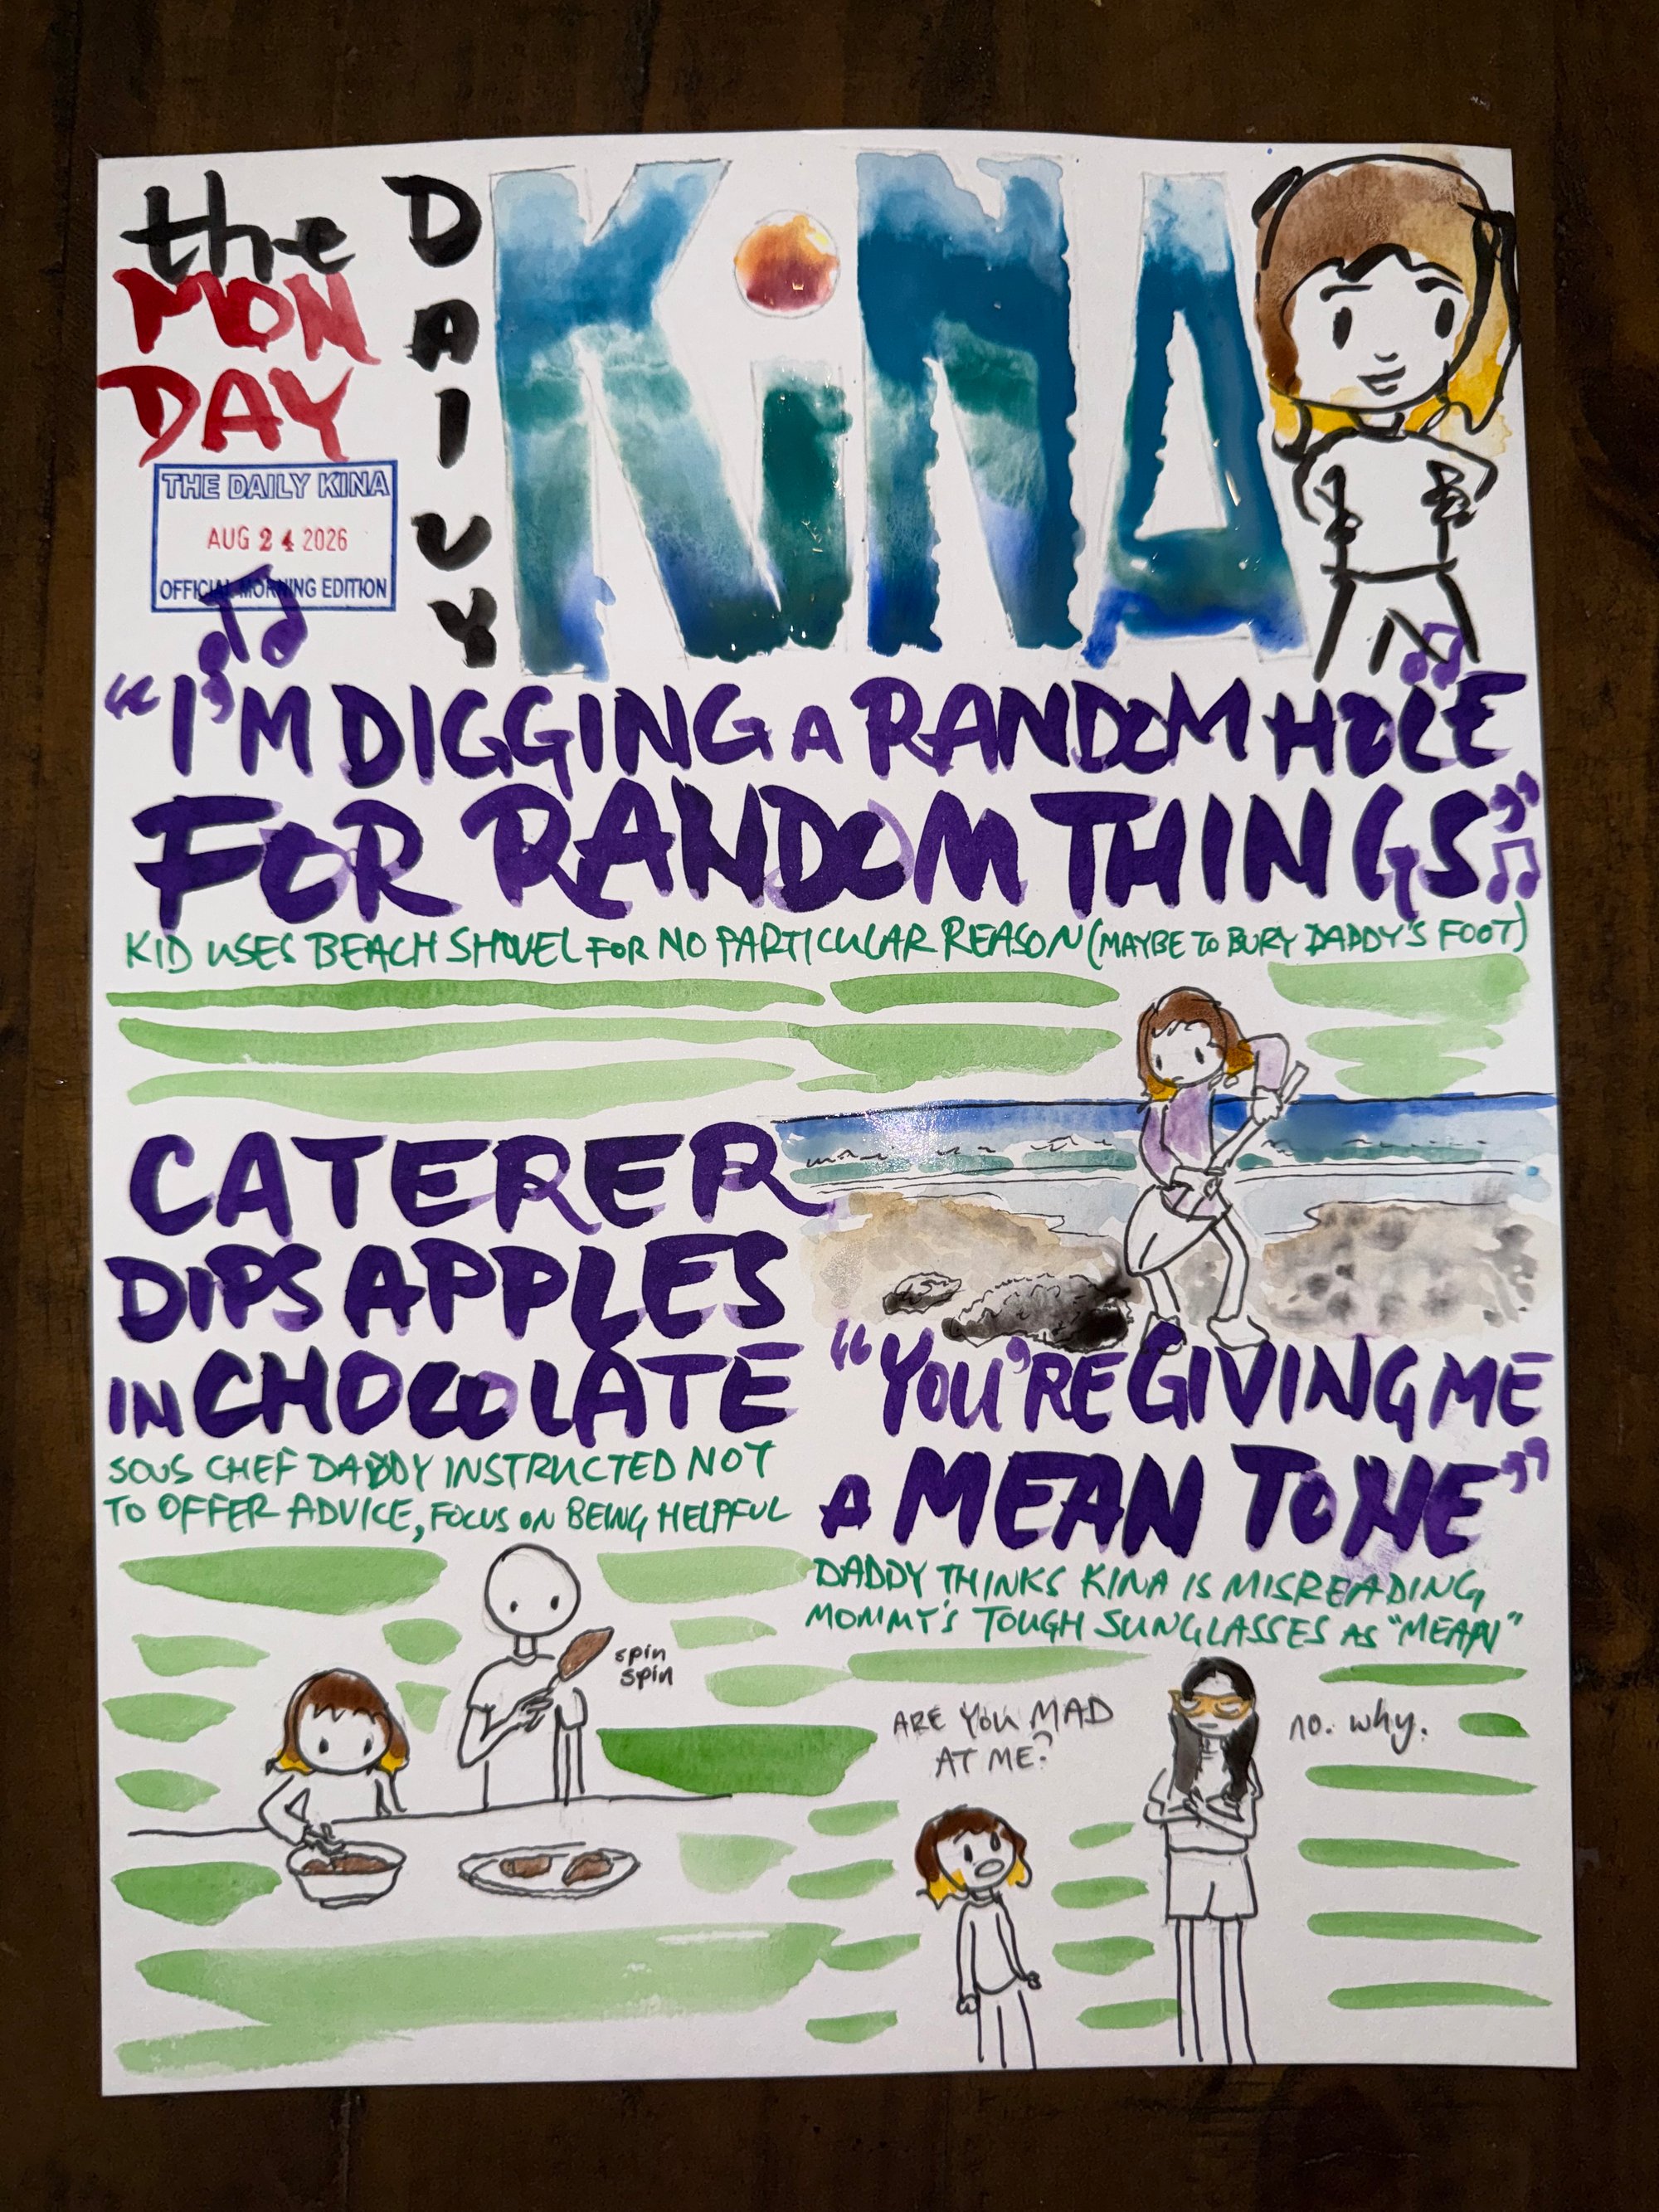 the
MON
DAY
DAILY
KiNA
THE DAILY KINA
AUG 24 2026
OFFICIAL MORNING EDITION
"I'M DIGGING A RANDOM HOLE
FOR RANDOM THINGS"
KID USES BEACH SHOVEL FOR NO PARTICULAR REASON (MAYBE TO BURY DADDY'S FOOT)
CATERER
DIPS APPLES
IN CHOCOLATE
SOUS CHEF DADDY INSTRUCTED NOT
TO OFFER ADVICE, FOCUS ON BEING HELPFUL
spin
spin
"YOU'RE GIVING ME
A MEAN TONE"
DADDY THINKS KINA IS MISREADING
MOMMY'S TOUGH SUNGLASSES AS "MEAN"
ARE YOU MAD
AT ME?
no. why.